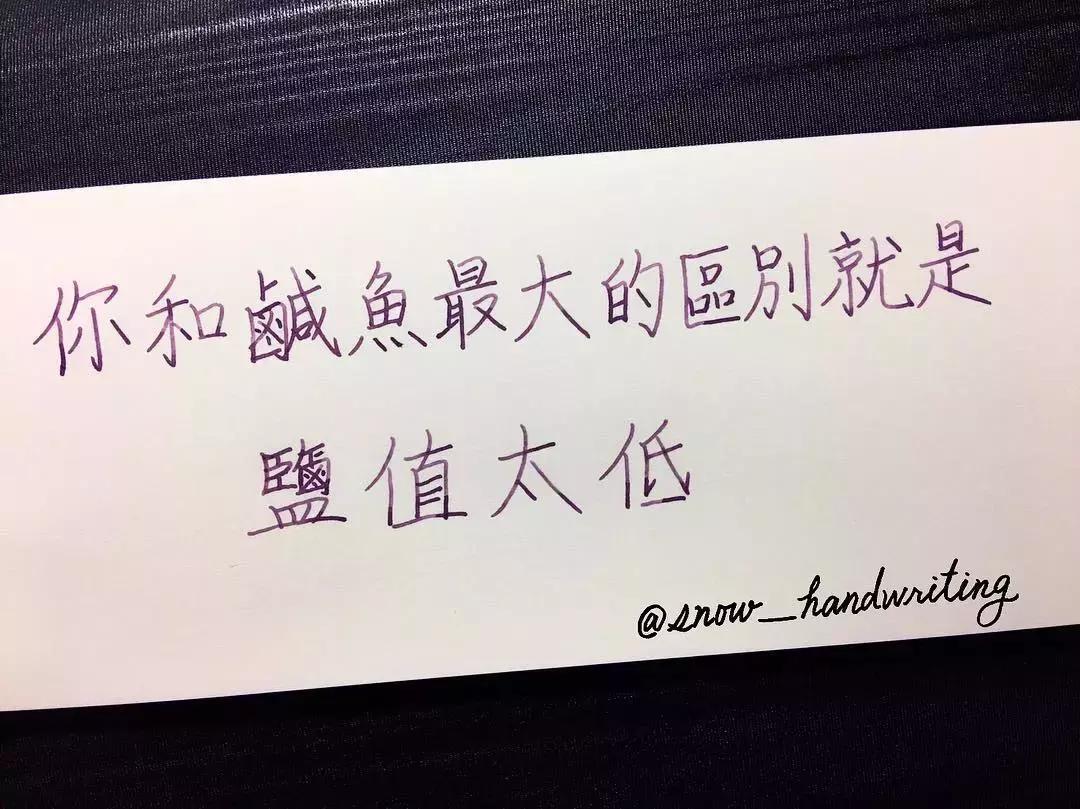 你和鹹魚最大的區別就是
鹽值太低
@snow_handwriting